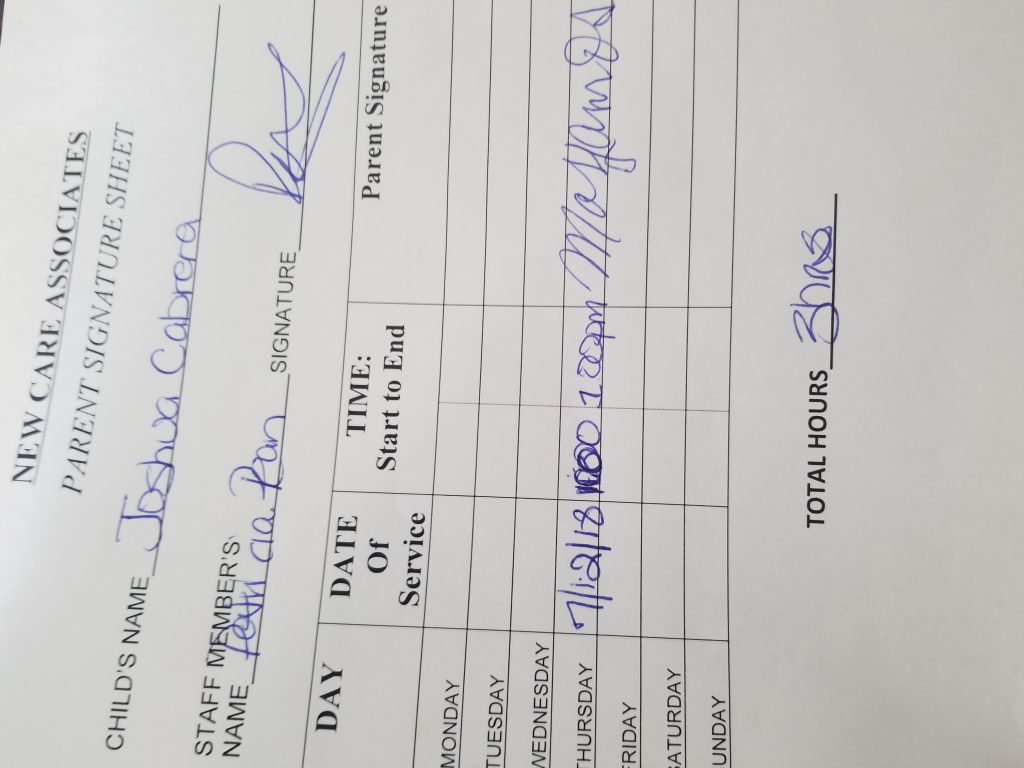 NEW CARE ASSOCIATES
PARENT SIGNATURE SHEET
CHILD'S NAME Joshua Cabrera
STAFF MEMBER'S
NAME SIGNATURE
DAY DATE Of Service TIME: Start to End Parent Signature
MONDAY
TUESDAY
WEDNESDAY
THURSDAY 7/12/18 1:00pm
FRIDAY
SATURDAY
UNDAY
TOTAL HOURS 3hrs